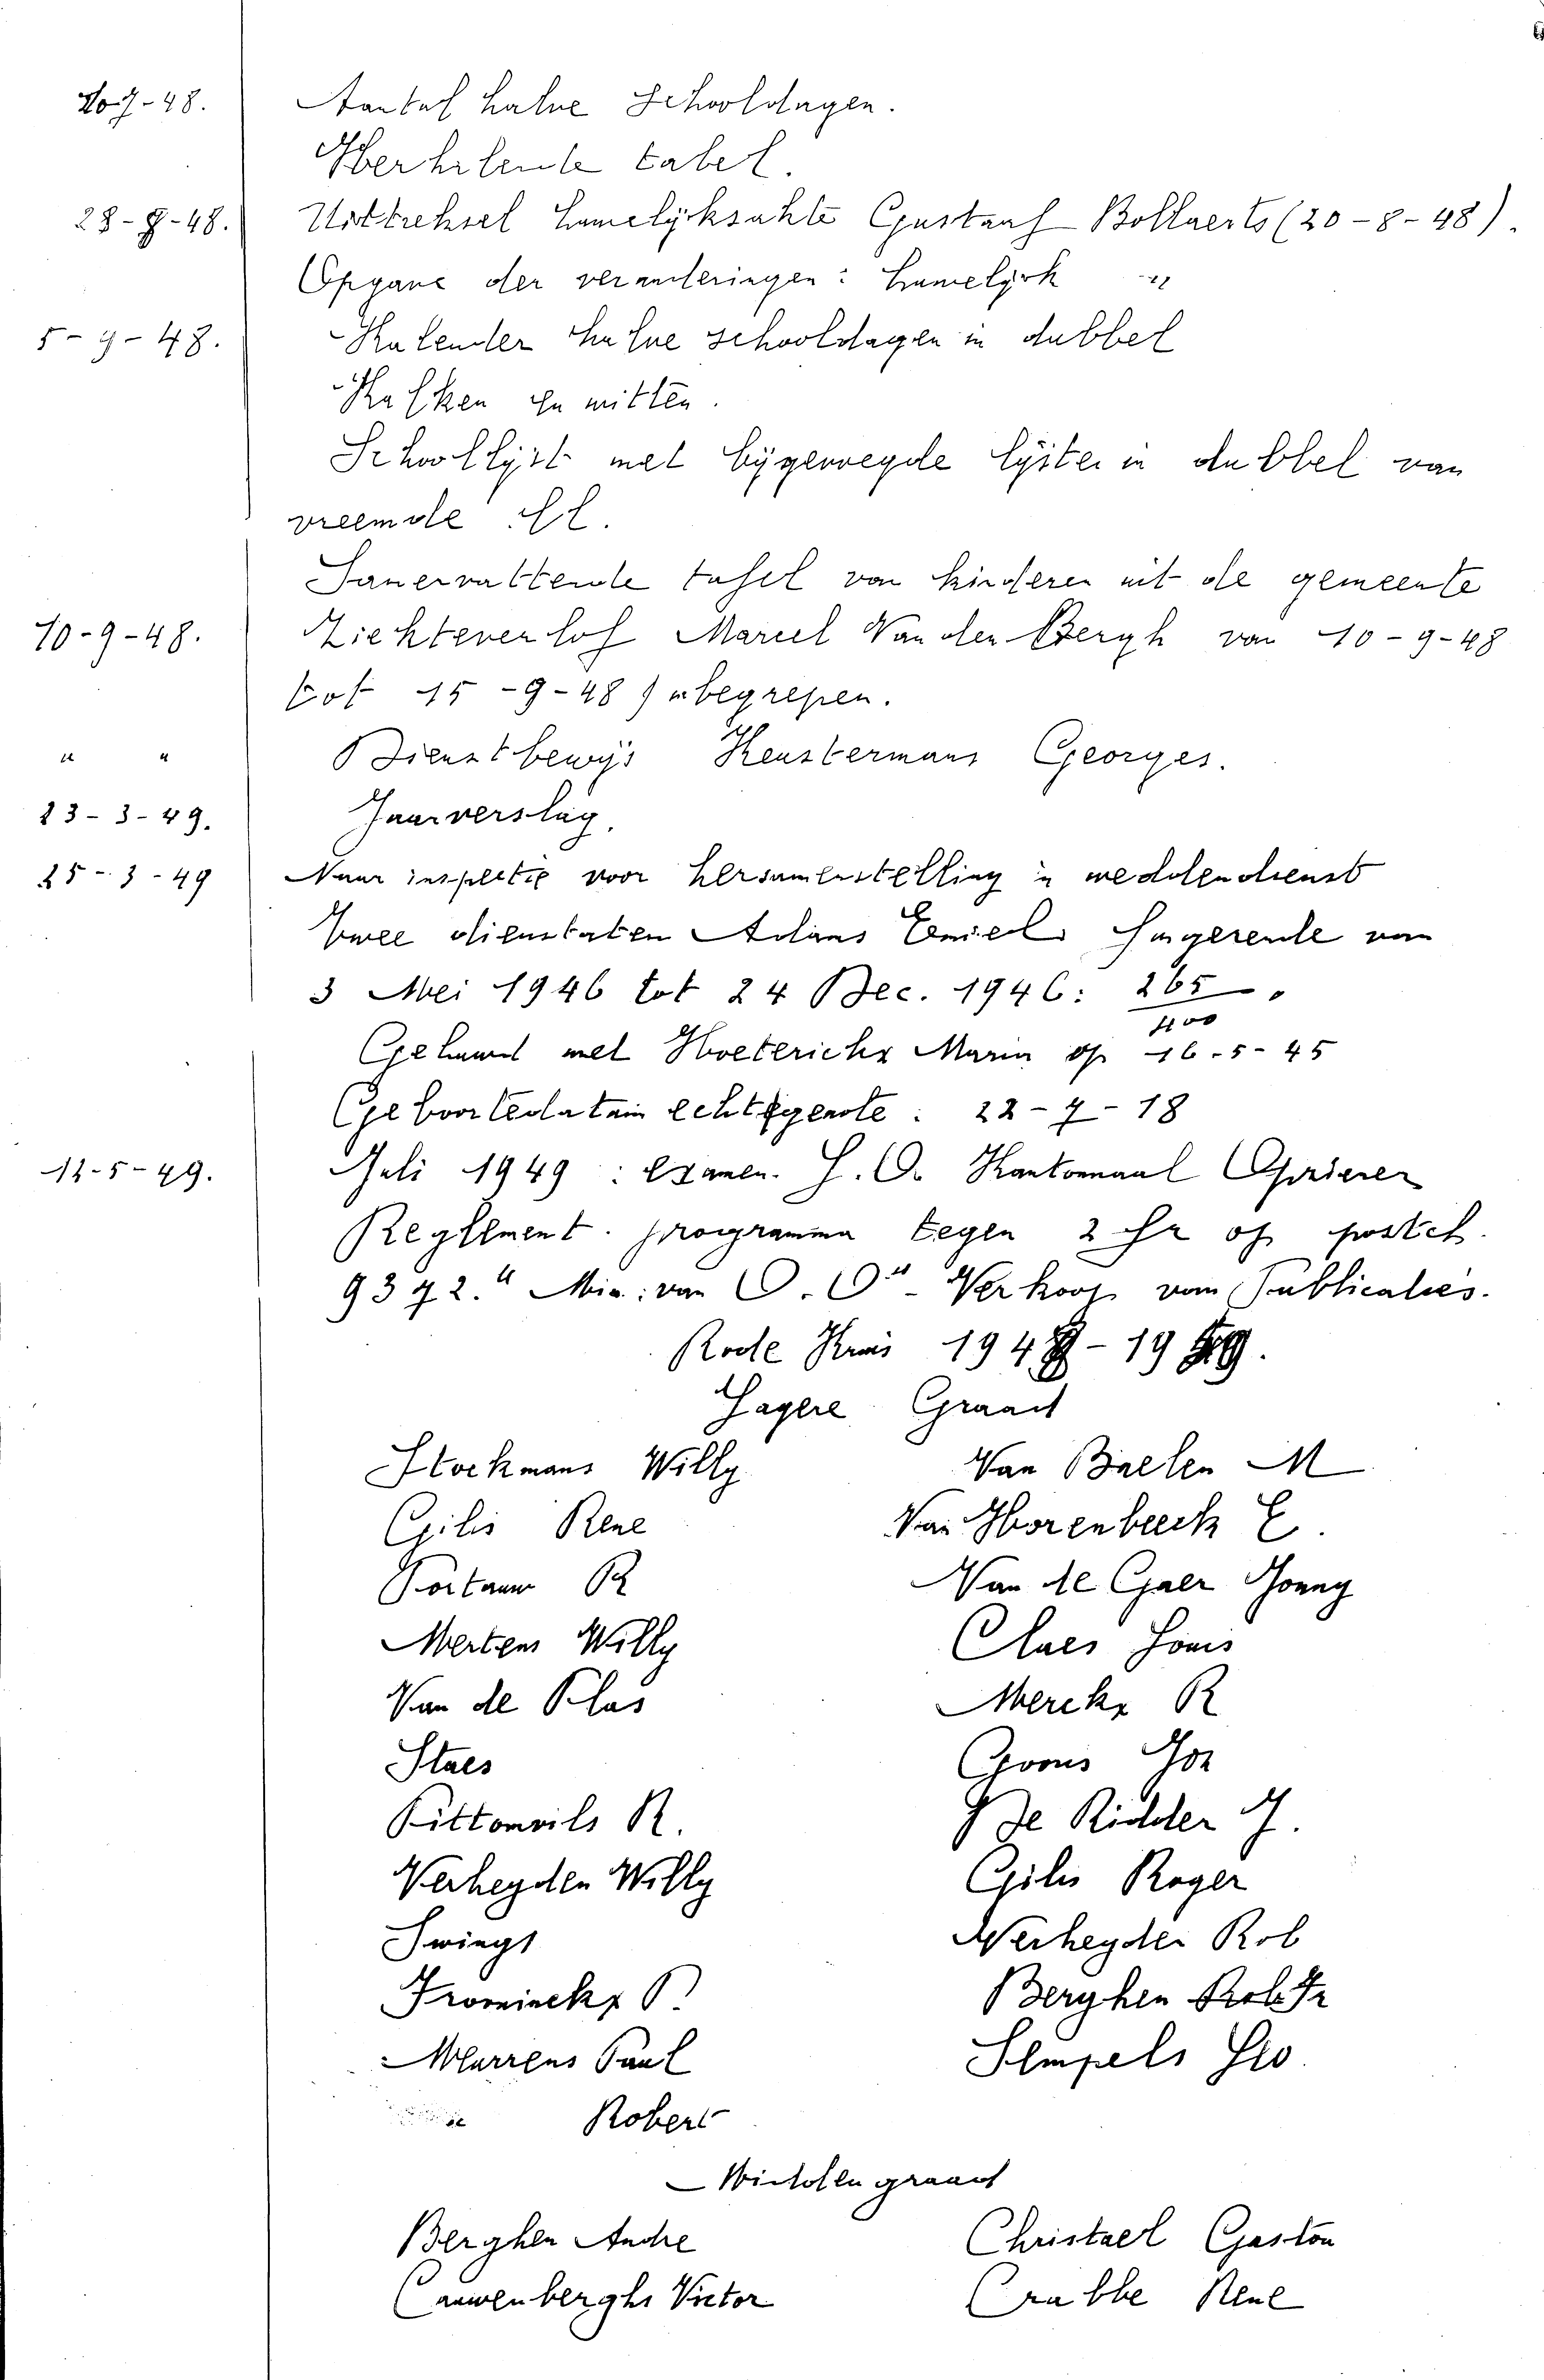 20-7-48. Aantal halve Schooldagen.
Herhalende tabel.
28-8-48. Uittreksel huwelijksakte Gustaaf Bollaerts (20-8-48).
Opgave der veranderingen: huwelijk "
5-9-48. Kalender halve schooldagen in dubbel
Schoollijst met bijgevoegde lijsten in dubbel van
vreemde ll.
Samenvattende tafel van kinderen uit de gemeente
10-9-48. Ziekteverlof Marcel Van den Bergh van 10-9-48
tot 15-9-48 inbegrepen.
" " Dienstbewijs Keustermans Georges.
23-3-49. Jaarverslag.
25-3-49 Naar inspectie voor hersamenstelling in weddendienst
Twee dienstaten Adans Emiel fungerende van
3 Mei 1946 tot 24 Dec. 1946: 265/400.
Gehuwd met Hoeterickx Maria op 16-5-45
Geboortedatum echtgenote: 22-7-18
12-5-49. Juli 1949: Examen. L.O. Kantonnaal
Reglement. programma tegen 2 fr op postch.
9372. " Min: van O.O" - Verkoop van Publicaties.
Rode Kruis 1948-1949.
Lagere Graad
Stockmans Willy Van Baelen M
Gilis Rene Van Horenbeeck E.
Portaum R Van de Gaer Jonny
Mertens Willy Claes Louis
Van de Plas Merckx R
Staes Gooris Jos
Pittomvils R. De Ridder J.
Verheyden Willy Gilis Roger
Swings Verheyden Rob
Frominckx P. Berghen Rob Fr
Meurrens Paul Sempels Leo
Robert
Middengraad
Berghen Andre Christael Gaston
Cauwenberghs Victor Crabbe Rene